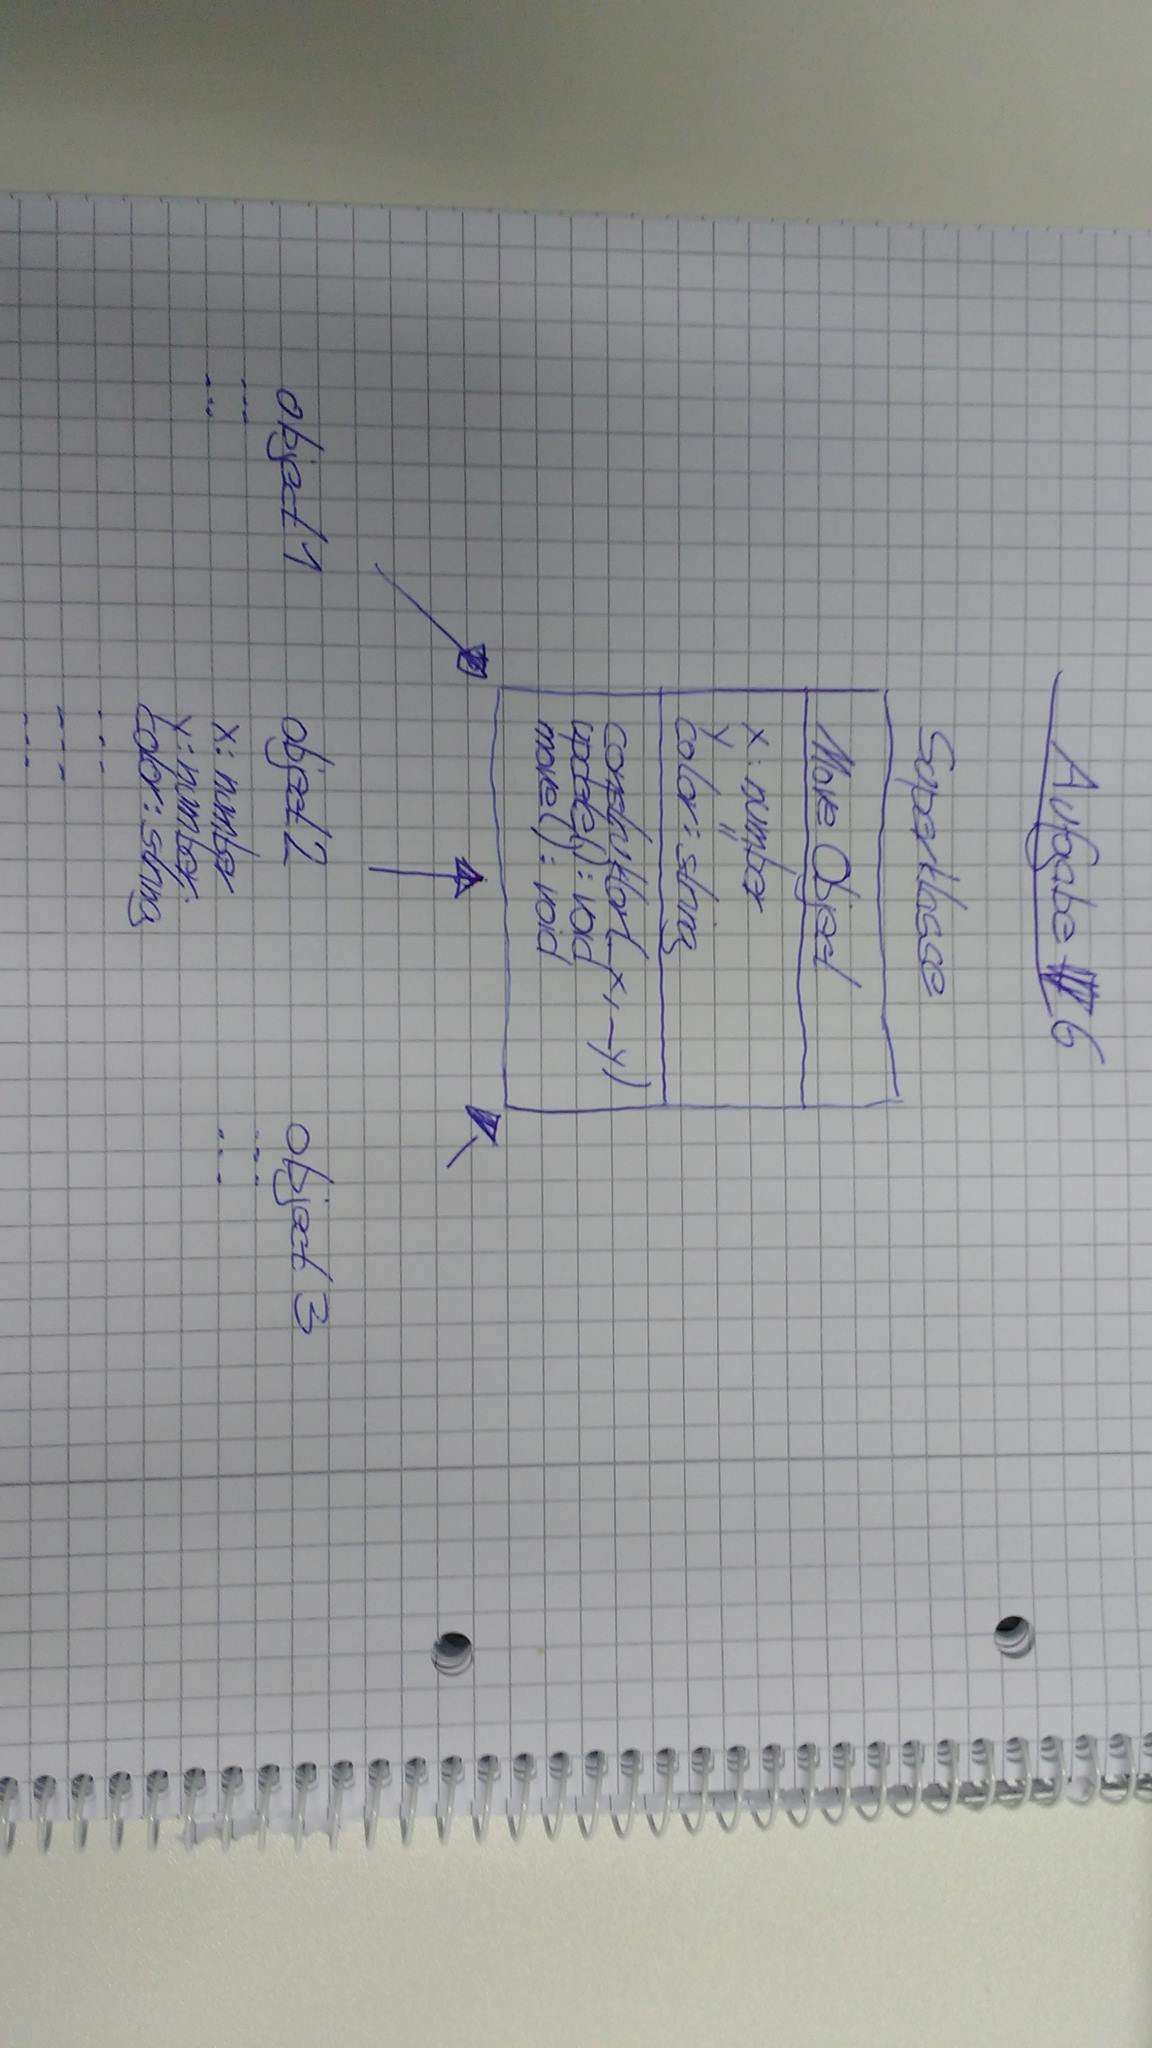 Aufgabe 6
Superklasse
Move Object
x: number
y "
color: string
constuktor(_x, _y)
update(): void
move(): void
object 1
...
...
object 2
x: number
y: number
color: string
...
...
...
object 3
...
...